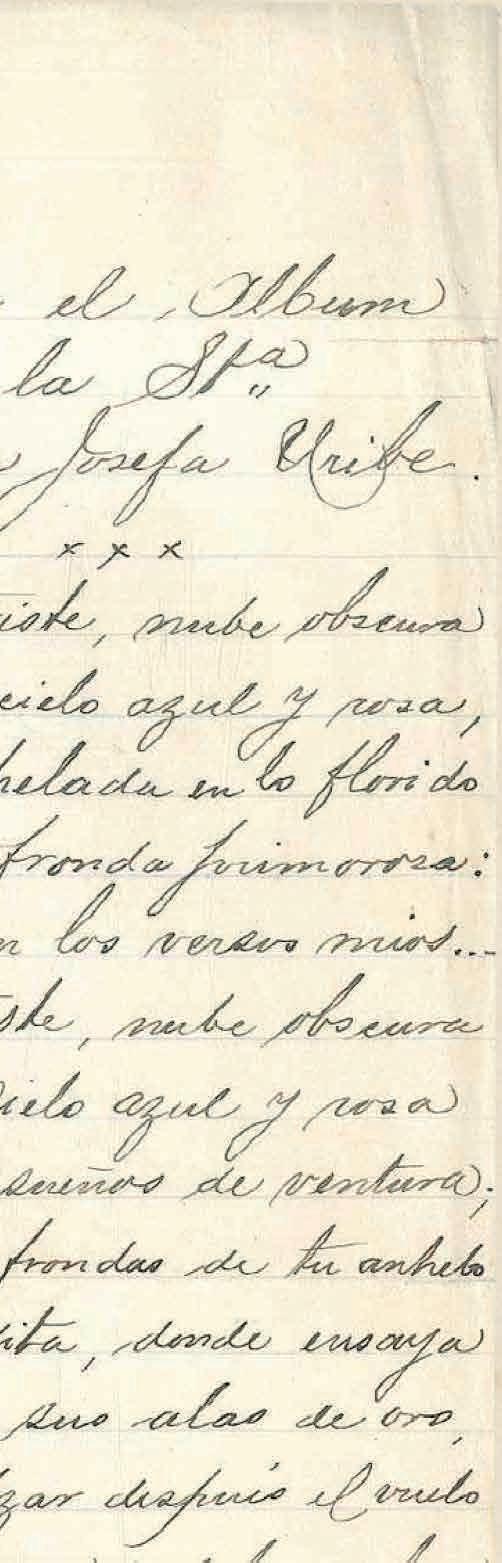 el Album
la Sta
Josefa Uribe.
x x x
iste, nube obscura
cielo azul y rosa,
helada en lo florido
fronda primorosa:
n los versos mios...
ste, nube obscura
ielo azul y rosa
sueños de ventura;
frondas de tu anhelo
ita, donde ensaya
sus alas de oro,
zar después el vuelo